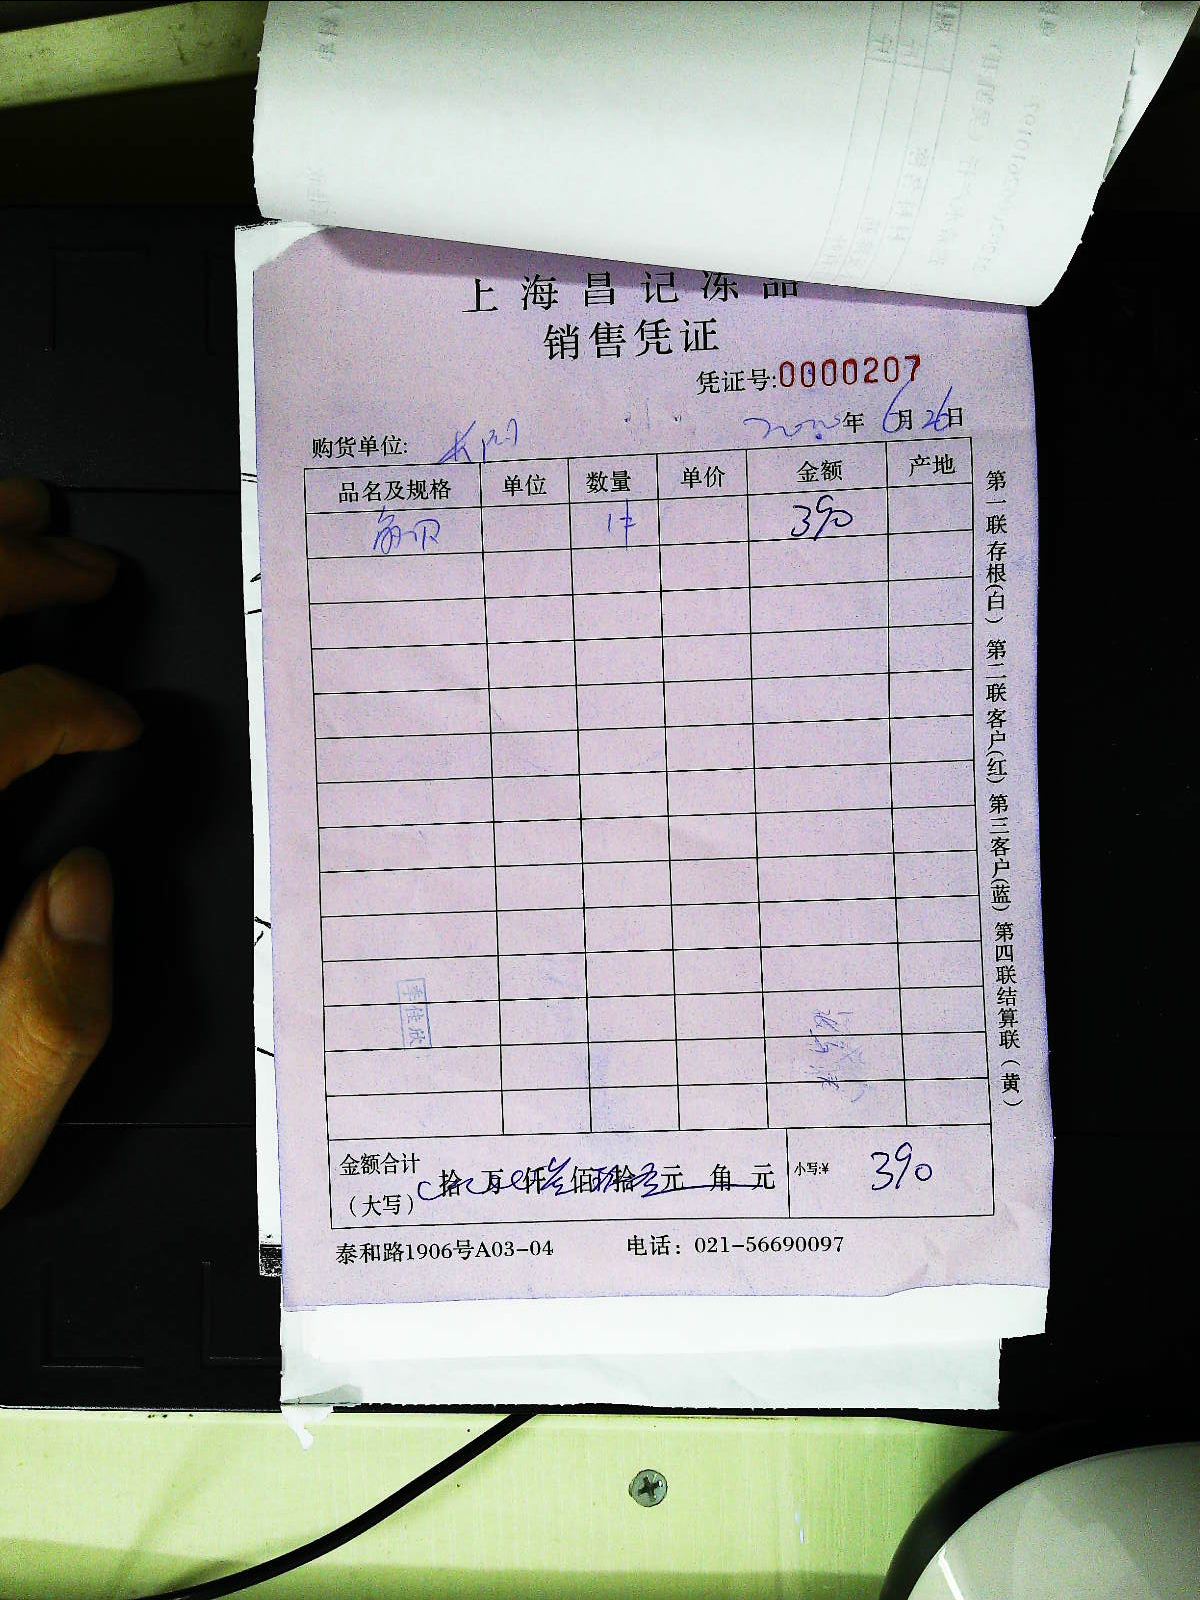 上海昌记冻品
销售凭证
凭证号:0000207
年 6月26日
购货单位: 长阳
品名及规格 单位 数量 单价 金额 产地
1件 390
第一联存根(白) 第二联客户(红) 第三客户(蓝) 第四联结算联(黄)
李佳欣
金额合计
(大写)
拾 万 仟叁佰玖拾零元 角 元
小写:¥ 390
泰和路1906号A03-04 电话: 021-56690097